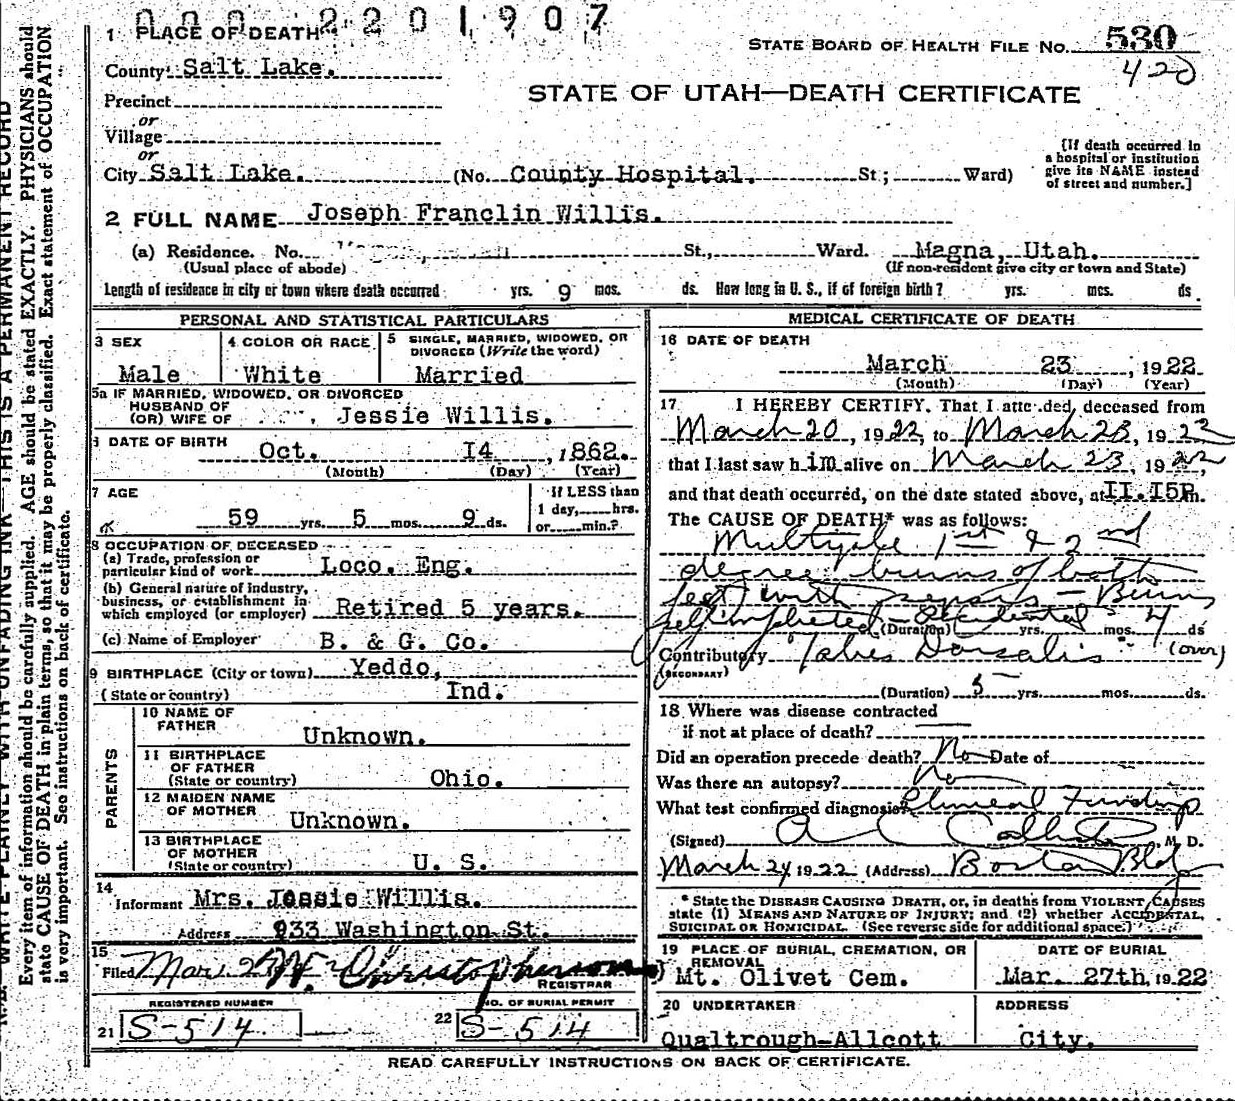 000 2201907
1 PLACE OF DEATH
STATE BOARD OF HEALTH FILE NO. 530
420
County Salt Lake.
STATE OF UTAH—DEATH CERTIFICATE
Precinct
or
Village
or
City Salt Lake. (No. County Hospital. St; Ward)
[If death occurred in a hospital or institution give its NAME instead of street and number.]
2 FULL NAME Joseph Franclin Willis.
(a) Residence. No. St., Ward. Magna, Utah.
(Usual place of abode) (If non-resident give city or town and State)
Length of residence in city or town where death occurred yrs. 9 mos. ds. How long in U. S., if of foreign birth? yrs. mos. ds.
PERSONAL AND STATISTICAL PARTICULARS
3 SEX Male
4 COLOR OR RACE White
5 SINGLE, MARRIED, WIDOWED, OR DIVORCED (Write the word) Married
5a IF MARRIED, WIDOWED, OR DIVORCED
HUSBAND OF
(OR) WIFE OF Jessie Willis.
6 DATE OF BIRTH Oct. I4 , 1862.
(Month) (Day) (Year)
7 AGE 59 yrs. 5 mos. 9 ds.
If LESS than 1 day, hrs. or min.?
8 OCCUPATION OF DECEASED
(a) Trade, profession or particular kind of work Loco. Eng.
(b) General nature of industry, business, or establishment in which employed (or employer) Retired 5 years.
(c) Name of Employer B. & G. Co.
9 BIRTHPLACE (City or town) Yeddo,
(State or country) Ind.
PARENTS
10 NAME OF FATHER Unknown.
11 BIRTHPLACE OF FATHER (State or country) Ohio.
12 MAIDEN NAME OF MOTHER Unknown.
13 BIRTHPLACE OF MOTHER (State or country) U. S.
14 Informant Mrs. Jessie Willis.
Address 933 Washington St.
15 Filed Mar. W. Christopherson
REGISTRAR
REGISTERED NUMBER
21 S-514
NO. OF BURIAL PERMIT
22 S-514
MEDICAL CERTIFICATE OF DEATH
16 DATE OF DEATH
March 23 , 1922
(Month) (Day) (Year)
17 I HEREBY CERTIFY, That I attended deceased from
March 20, 1922, to March 23, 1922
that I last saw him alive on March 23, 1922,
and that death occurred, on the date stated above, at II.I5P.m.
The CAUSE OF DEATH* was as follows:
Multiple 1st & 2nd
degree burns of both
feet with sepsis - Burns
self inflicted - Accidental (Duration) yrs. mos. 4 ds
Contributory Tabes Dorsalis (over)
(SECONDARY)
(Duration) 5 yrs. mos. ds.
18 Where was disease contracted
if not at place of death?
Did an operation precede death? No Date of
Was there an autopsy? No
What test confirmed diagnosis? Clinical Findings
(Signed) A C Callister, M. D.
March 24 1922 (Address) Boston Bld
* State the DISEASE CAUSING DEATH, or, in deaths from VIOLENT CAUSES
state (1) MEANS AND NATURE OF INJURY; and (2) whether ACCIDENTAL,
SUICIDAL OR HOMICIDAL. (See reverse side for additional space.)
19 PLACE OF BURIAL, CREMATION, OR REMOVAL
Mt. Olivet Cem.
DATE OF BURIAL
Mar. 27th, 1922
20 UNDERTAKER
Qualtrough-Allcott
ADDRESS
City.
READ CAREFULLY INSTRUCTIONS ON BACK OF CERTIFICATE.
N. B. WRITE PLAINLY WITH UNFADING INK—THIS IS A PERMANENT RECORD
Every item of information should be carefully supplied. AGE should be stated EXACTLY. PHYSICIANS should
state CAUSE OF DEATH in plain terms, so that it may be properly classified. Exact statement of OCCUPATION
is very important. See instructions on back of certificate.